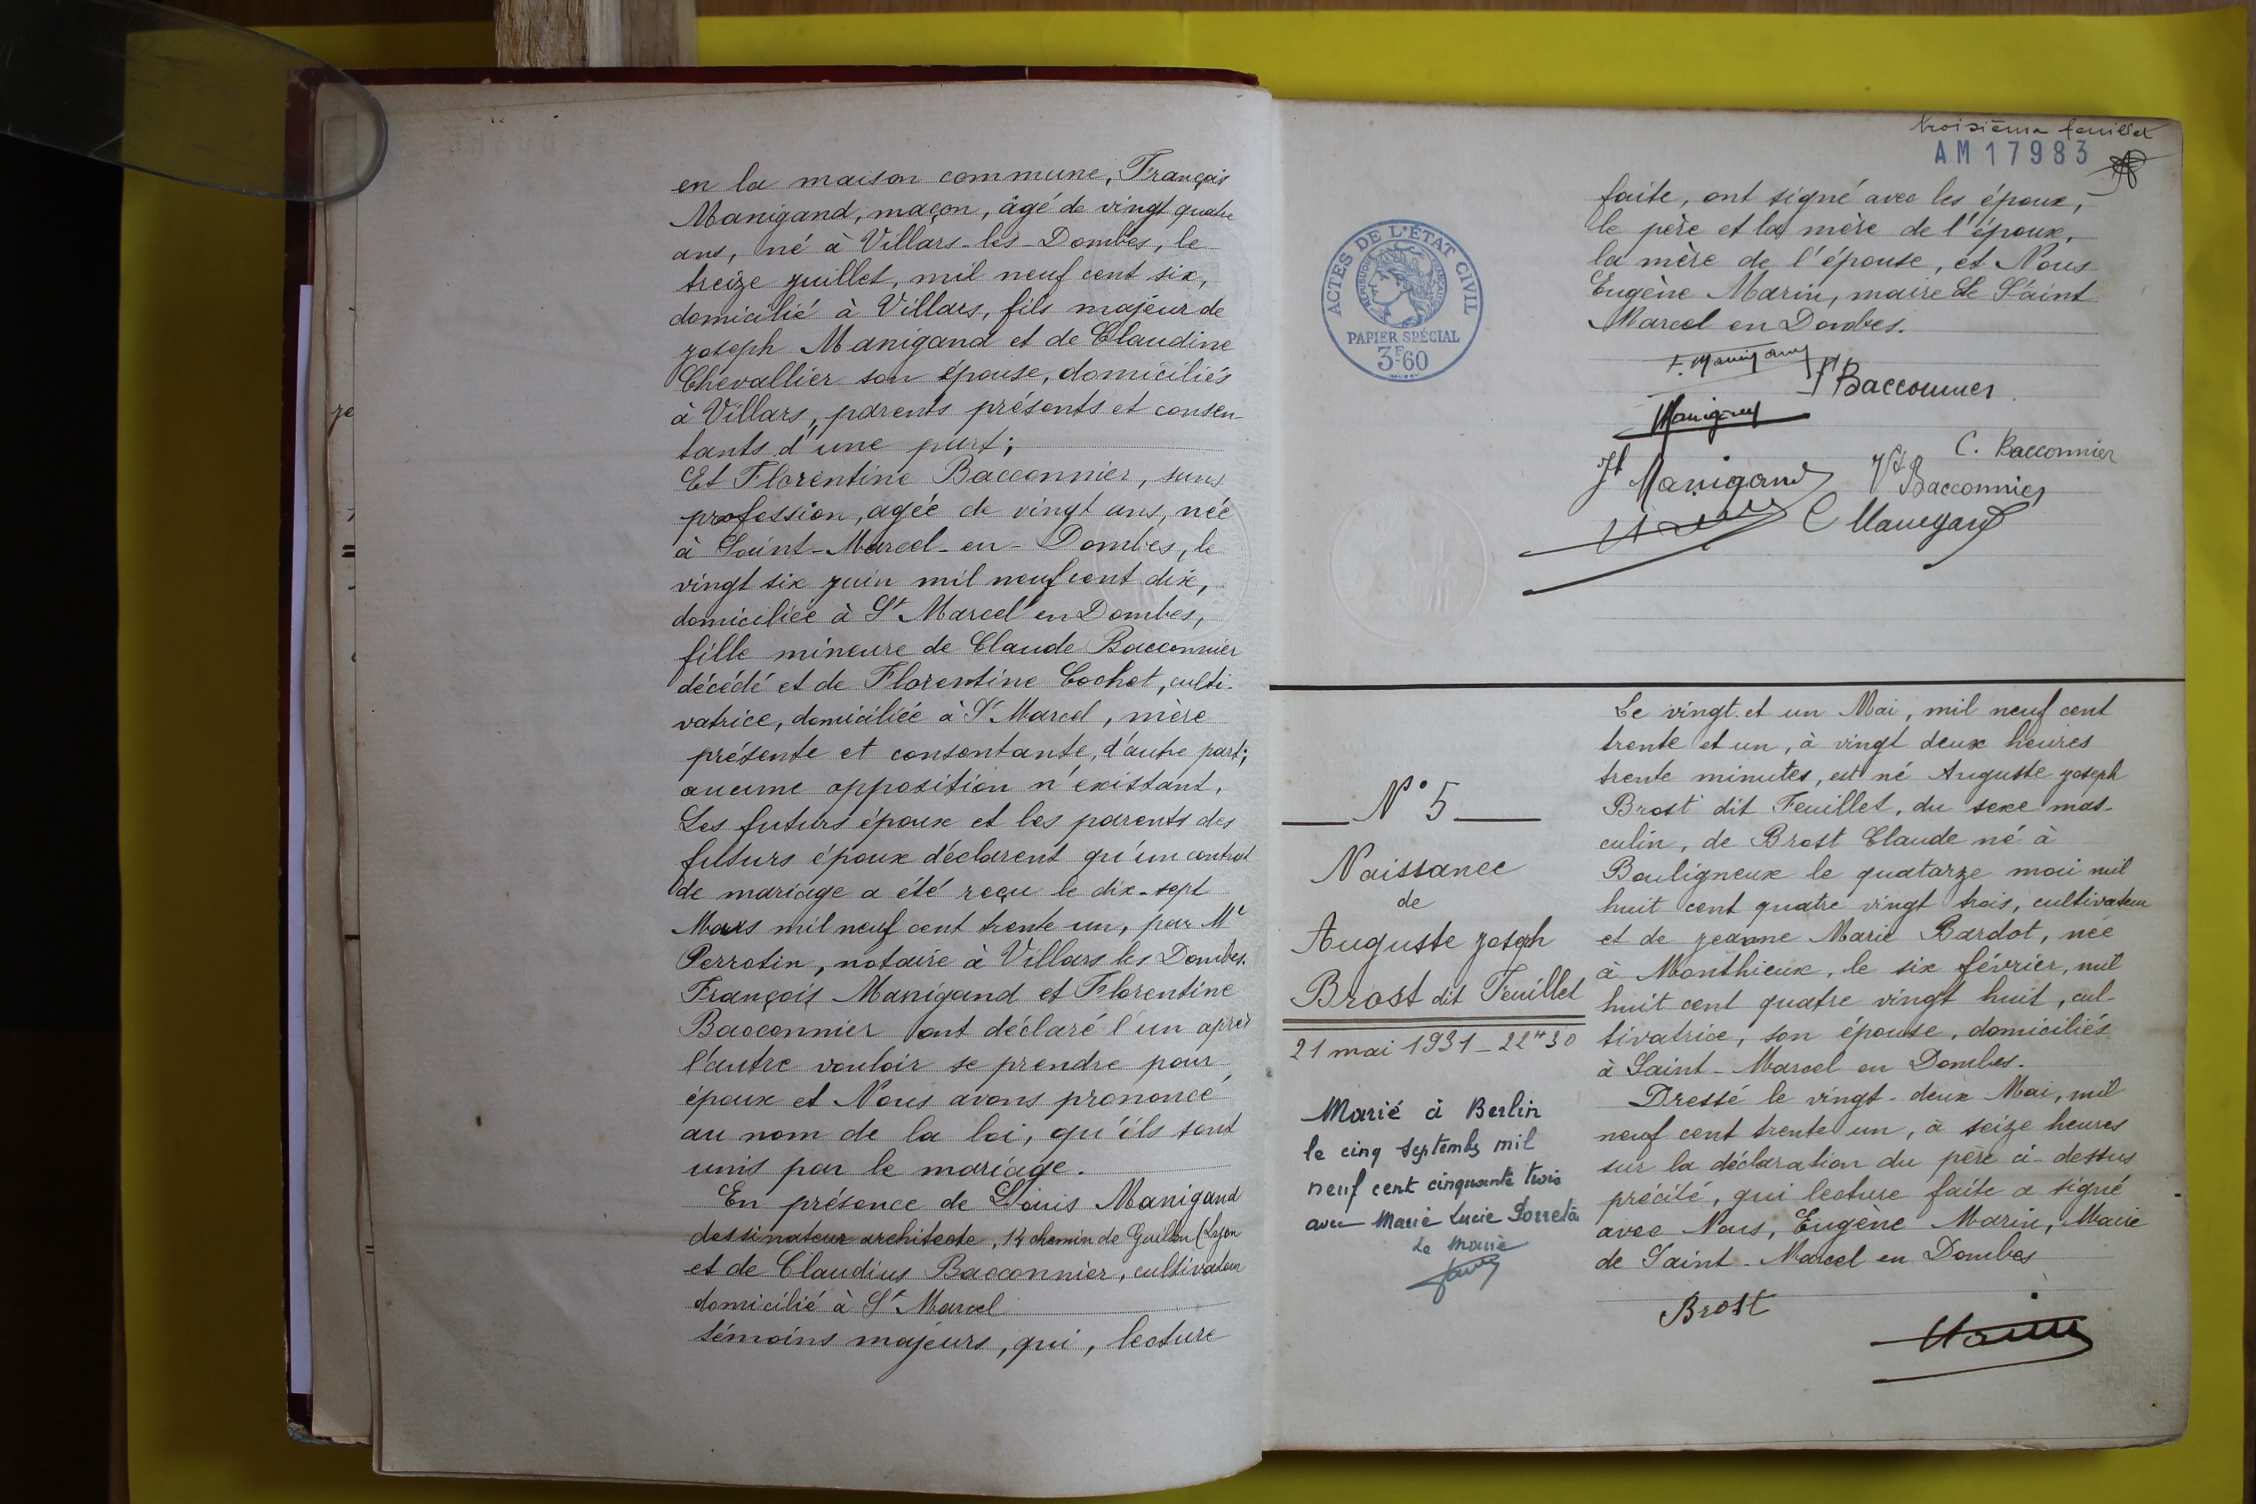 en la maison commune, François
Manigand, maçon, âgé de vingt quatre
ans, né à Villars-les-Dombes, le
treize juillet, mil neuf cent six,
domicilié à Villars, fils majeur de
joseph Manigand et de Claudine
Chevallier son épouse, domiciliés
à Villars, parents présents et consen-
tants d'une part;
Et Florentine Bacconnier, sans
profession, agée de vingt ans, née
à Saint-Marcel-en-Dombes, le
vingt six juin mil neuf cent dix,
domiciliée à St Marcel en Dombes,
fille mineure de Claude Bacconnier
décédé et de Florentine Cochet, culti-
vatrice, domiciliée à St Marcel, mère
présente et consentante, d'autre part;
aucune opposition n'existant.
Les futurs époux et les parents des
futurs époux déclarent qu'un contrat
de mariage a été reçu le dix-sept
Mars mil neuf cent trente un, par Me
Perrotin, notaire à Villars les Dombes.
François Manigand et Florentine
Bacconnier ont déclaré l'un après
l'autre vouloir se prendre pour
époux et Nous avons prononcé
au nom de la loi, qu'ils sont
unis par le mariage.
En présence de Louis Manigand
dessinateur architecte, 14 chemin de (Lyon
et de Claudius Bacconnier, cultivateur
domicilié à St Marcel
témoins majeurs, qui, lecture
troisième feuillet
AM17983
ACTES DE L'ÉTAT CIVIL
RÉPUBLIQUE FRANÇAISE
PAPIER SPÉCIAL
3F60
faite, ont signé avec les époux,
le père et la mère de l'époux,
la mère de l'épouse, et Nous
Eugène Marin, maire de Saint
Marcel en Dombes.
F. Manigand
Ft Bacconnier
Manigand
C. Bacconnier
Jh Manigand
Vt Bacconnier
Marin
C Manigand
N° 5
Naissance
de
Auguste joseph
Brost dit Feuillet
21 mai 1931 - 22H30
Marié à Berlin
le cinq septembre mil
neuf cent cinquante trois
avec Marie Lucie
Le Maire
Le vingt et un Mai, mil neuf cent
trente et un, à vingt deux heures
trente minutes, est né Auguste joseph
Brost dit Feuillet, du sexe mas-
culin, de Brost Claude né à
Bouligneux le quatorze mai mil
huit cent quatre vingt trois, cultivateur
et de jeanne Marie Bardot, née
à Monthieux, le six février, mil
huit cent quatre vingt huit, cul-
tivatrice, son épouse, domiciliés
à Saint-Marcel en Dombes.
Dressé le vingt-deux Mai, mil
neuf cent trente un, à seize heures
sur la déclaration du père ci-dessus
précité, qui lecture faite a signé
avec Nous, Eugène Marin, Maire
de Saint-Marcel en Dombes
Brost
Marin